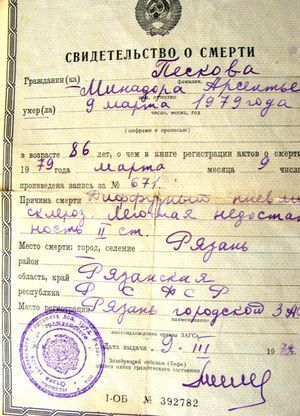 СВИДЕТЕЛЬСТВО О СМЕРТИ
Гражданин(ка) Пескова
фамилия,
Минадора Арсентье
имя, отчество
умер(ла) 9 марта 1979 года
число, месяц, год
(цифрами и прописью)
в возрасте 86 лет, о чем в книге регистрации актов о смерти
1979 года марта месяца 9 числа
произведена запись за № 671
Причина смерти Диффузный пневмо
склероз Легочная недостат
ность II ст.
Место смерти: город, селение Рязань
район
область, край Рязанская
республика РСФСР
Место регистрации Рязань городской ЗАГС
наименование
местонахождение органа ЗАГСа
Дата выдачи 9 III 1979
Заведующий отделом (бюро)
записи актов гражданского состояния
I-ОБ № 392782